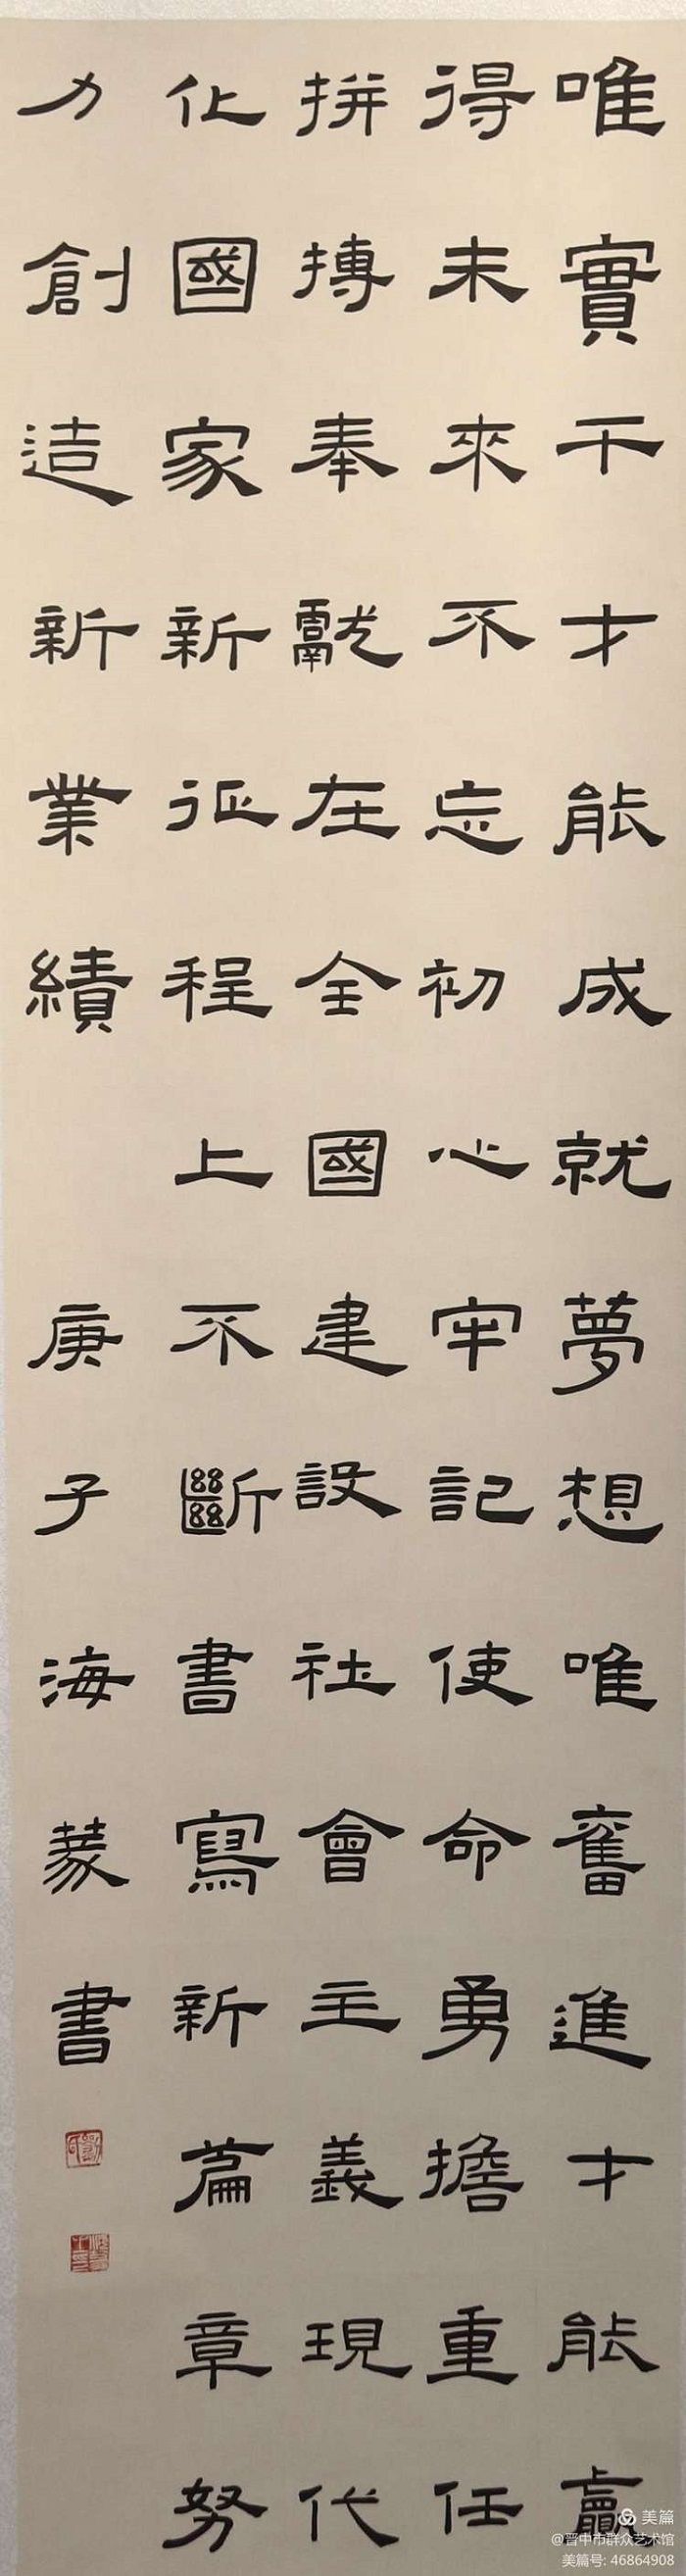 唯實干才能成就夢想唯奮進才能贏
得未來不忘初心牢記使命勇擔重任
拼搏奉獻在全國建設社會主義現代
化國家新征程上不斷書寫新篇章努
力創造新業績
庚子海蒙書
美篇
@晋中市群众艺术馆
美篇号: 46864908